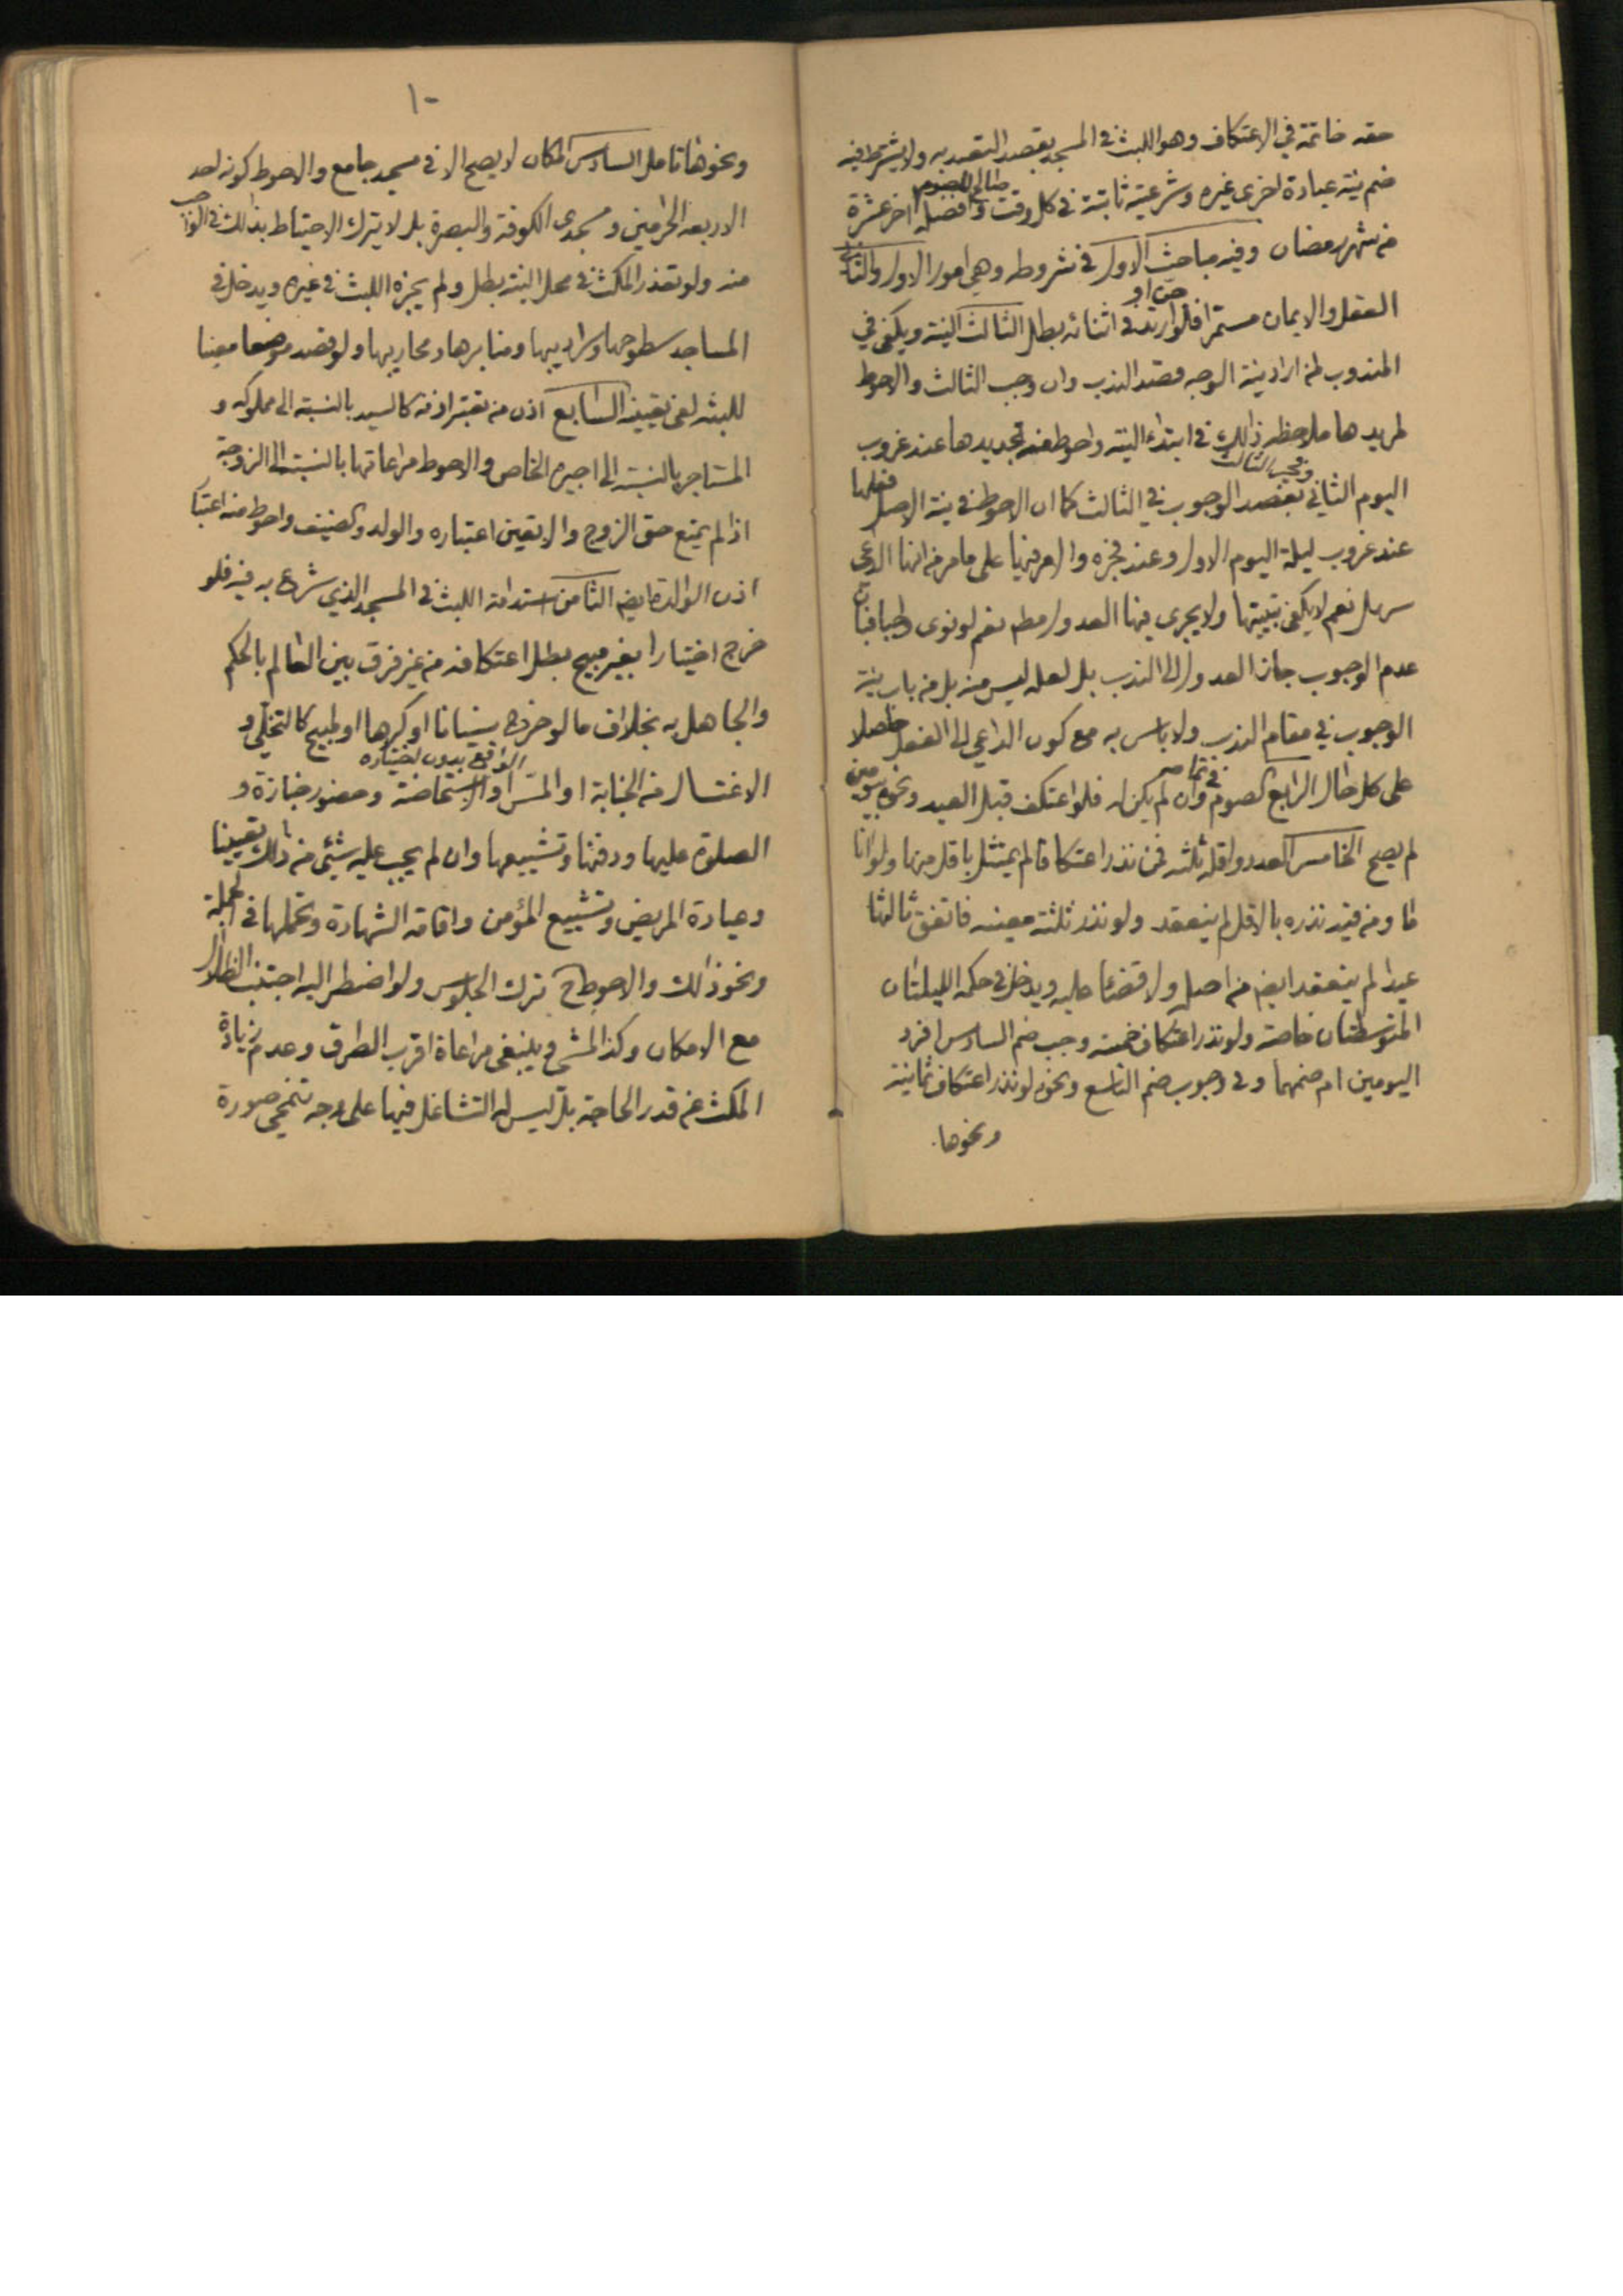 حقه خاتمة في الاعتكاف وهو اللبث في المسجد بقصد التعبد به ولا يشترط فيه
ضم نية عبادة اخرى غيره وشرعيته ثابتة في كل وقت صالح للصوم وافضله اخر عشرة
من شهر رمضان وفيه مباحث الاول في شروطه وهي امور الاول والثاني
العقل والايمان مستمرا فلو جن او ارتد في اثنائه بطل الثالث النية ويكفي في
المندوب لمن اراد نية الوجه قصد الندب وان وجب الثالث والاحوط
لمريدها ملاحظة ذلك في ابتداء النية واحوط منه تجديدها عند غروب
اليوم الثاني بقصد الوجوب في الثالث كما ان الاحوط في نية الاصل فعلها
عند غروب ليلة اليوم الاول وعند فجره والامر فيها على ما مر من انها الداعي
سهل نعم لا يكفي تبييتها ولا يجرى فيها العدول مطم نعم لو نوى واجبا فبان
عدم الوجوب جاز العدول الى الندب بل لعله ليس منه بل من باب نية
الوجوب في مقام الندب ولا باس به مع كون الداعي الى الفعل حاصلا
على كل حال الرابع الصوم وان لم يكن له فلو اعتكف قبل العيد ونحوه بيومين
لم يصح الخامس العدد واقله ثلثه فمن نذر اعتكافا لم يمتثل باقل منها ولو
ومن قيد نذره بالاقل لم ينعقد ولو نذر ثلثة معينه فاتفق ثالثها
عيدا لم ينعقد ايضا من اصل ولا قضاء عليه ويدخل في حكمه الليلتان
المتوسطتان خاصة ولو نذر اعتكاف خمسه وجب ضم السادس افرد
اليومين ام ضمهما وفي وجوب ضم التاسع ونحوه لو نذر اعتكاف ثمانية
ونحوها
١٠
ونحوها تامل السادس المكان لا يصح الا في مسجد جامع والاحوط كونه احد
الاربعة الحرمين ومسجدى الكوفة والبصرة بل لا يترك الاحتياط بذلك في الواجب
منه ولو تعذر المكث في محل النية بطل ولم يجزه اللبث في غيره ويدخل في
المساجد سطوحها وسراديبها ومنابرها ومحاريبها ولو قصد موضعا معينا
للبثه لغى تعيينه السابع اذن من يعتبر اذنه كالسيد بالنسبة الى مملوكه و
المستاجر بالنسبة الى اجيره الخاص والاحوط مراعاتها بالنسبة الى الزوجة
اذا لم يمنع حق الزوج والا تعين اعتباره والولد والضيف واحوط منه اعتبار
اذن الوالدة ايضا الثامن استدامة اللبث في المسجد الذي شرع به فيه فلو
خرج اختيارا بغير مبيح بطل اعتكافه من غير فرق بين العالم بالحكم
والجاهل به بخلاف ما لو خرج نسيانا او كرها او لمبيح كالتخلي و
الاغتسال من الجنابة الواقع بدون اختياره او المس او الاستحاضة وحضور جنازة و
الصلوة عليها ودفنها وتشييعها وان لم يجب عليه شيئ من ذلك تعيينا
وعيادة المريض وتشييع المؤمن واقامة الشهادة وتحملها في الجملة
ونحو ذلك والاحوط ح ترك الجلوس ولو اضطر اليه اجتنب الظلال
مع الامكان وكذا المشي وينبغي مراعاة اقرب الطرق وعدم زيادة
المكث عن قدر الحاجة بل ليس له التشاغل فيها على وجه تنمحي صورة